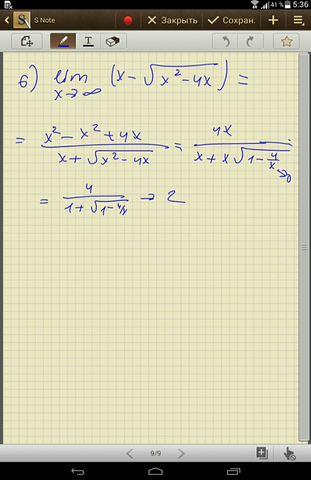 41 % 5:36
S Note Закрыть Сохран.
T
б) lim (x - √(x² - 4x)) =
x→∞
= (x² - x² + 4x) / (x + √(x² - 4x)) = 4x / (x + x√(1 - 4/x)) →0
= 4 / (1 + √(1 - 4/x)) → 2
9/9